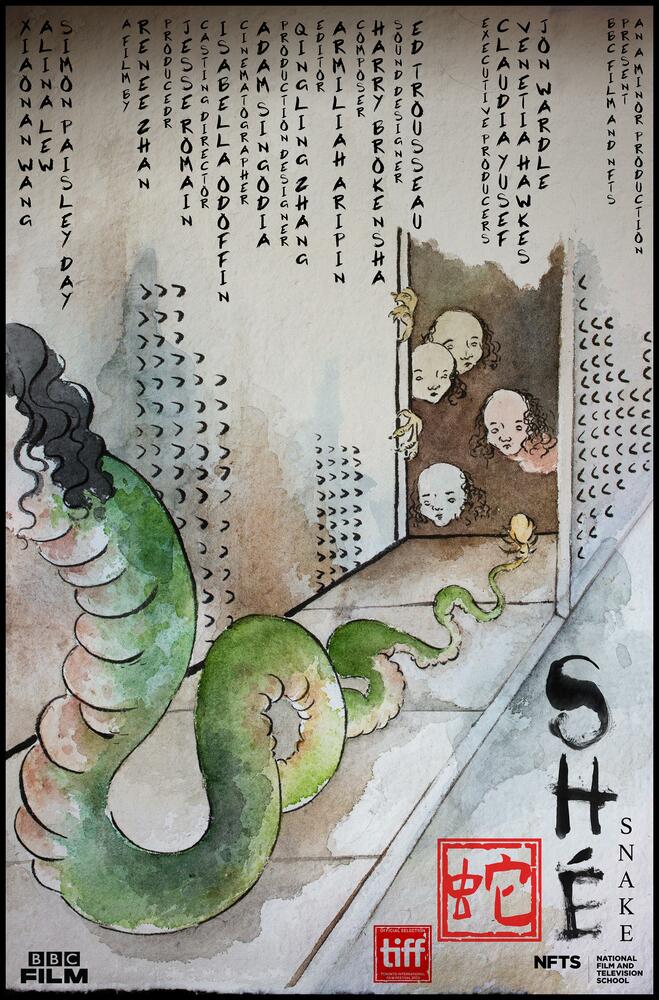 XIAONAN WANG
ALINA LEW
SIMON PAISLEY DAY
A FILM BY
RENEE ZHAN
PRODUCER
JESSE ROMAIN
CASTING DIRECTOR
ISABELLA ODOFFIN
CINEMATOGRAPHER
ADAM SINGODIA
PRODUCTION DESIGNER
QINGLING ZHANG
EDITOR
ARMILIAH ARIPIN
COMPOSER
HARRY BROKENSHA
SOUND DESIGNER
ED TROUSSEAU
EXECUTIVE PRODUCERS
CLAUDIA YUSEF
VENETIA HAWKES
JON WARDLE
BBC FILM AND NFTS
PRESENT
AN A MINOR PRODUCTION
SHÉ
SNAKE
蛇
OFFICIAL SELECTION
tiff
TORONTO INTERNATIONAL
BBC
FILM
NFTS
NATIONAL
FILM AND
TELEVISION
SCHOOL